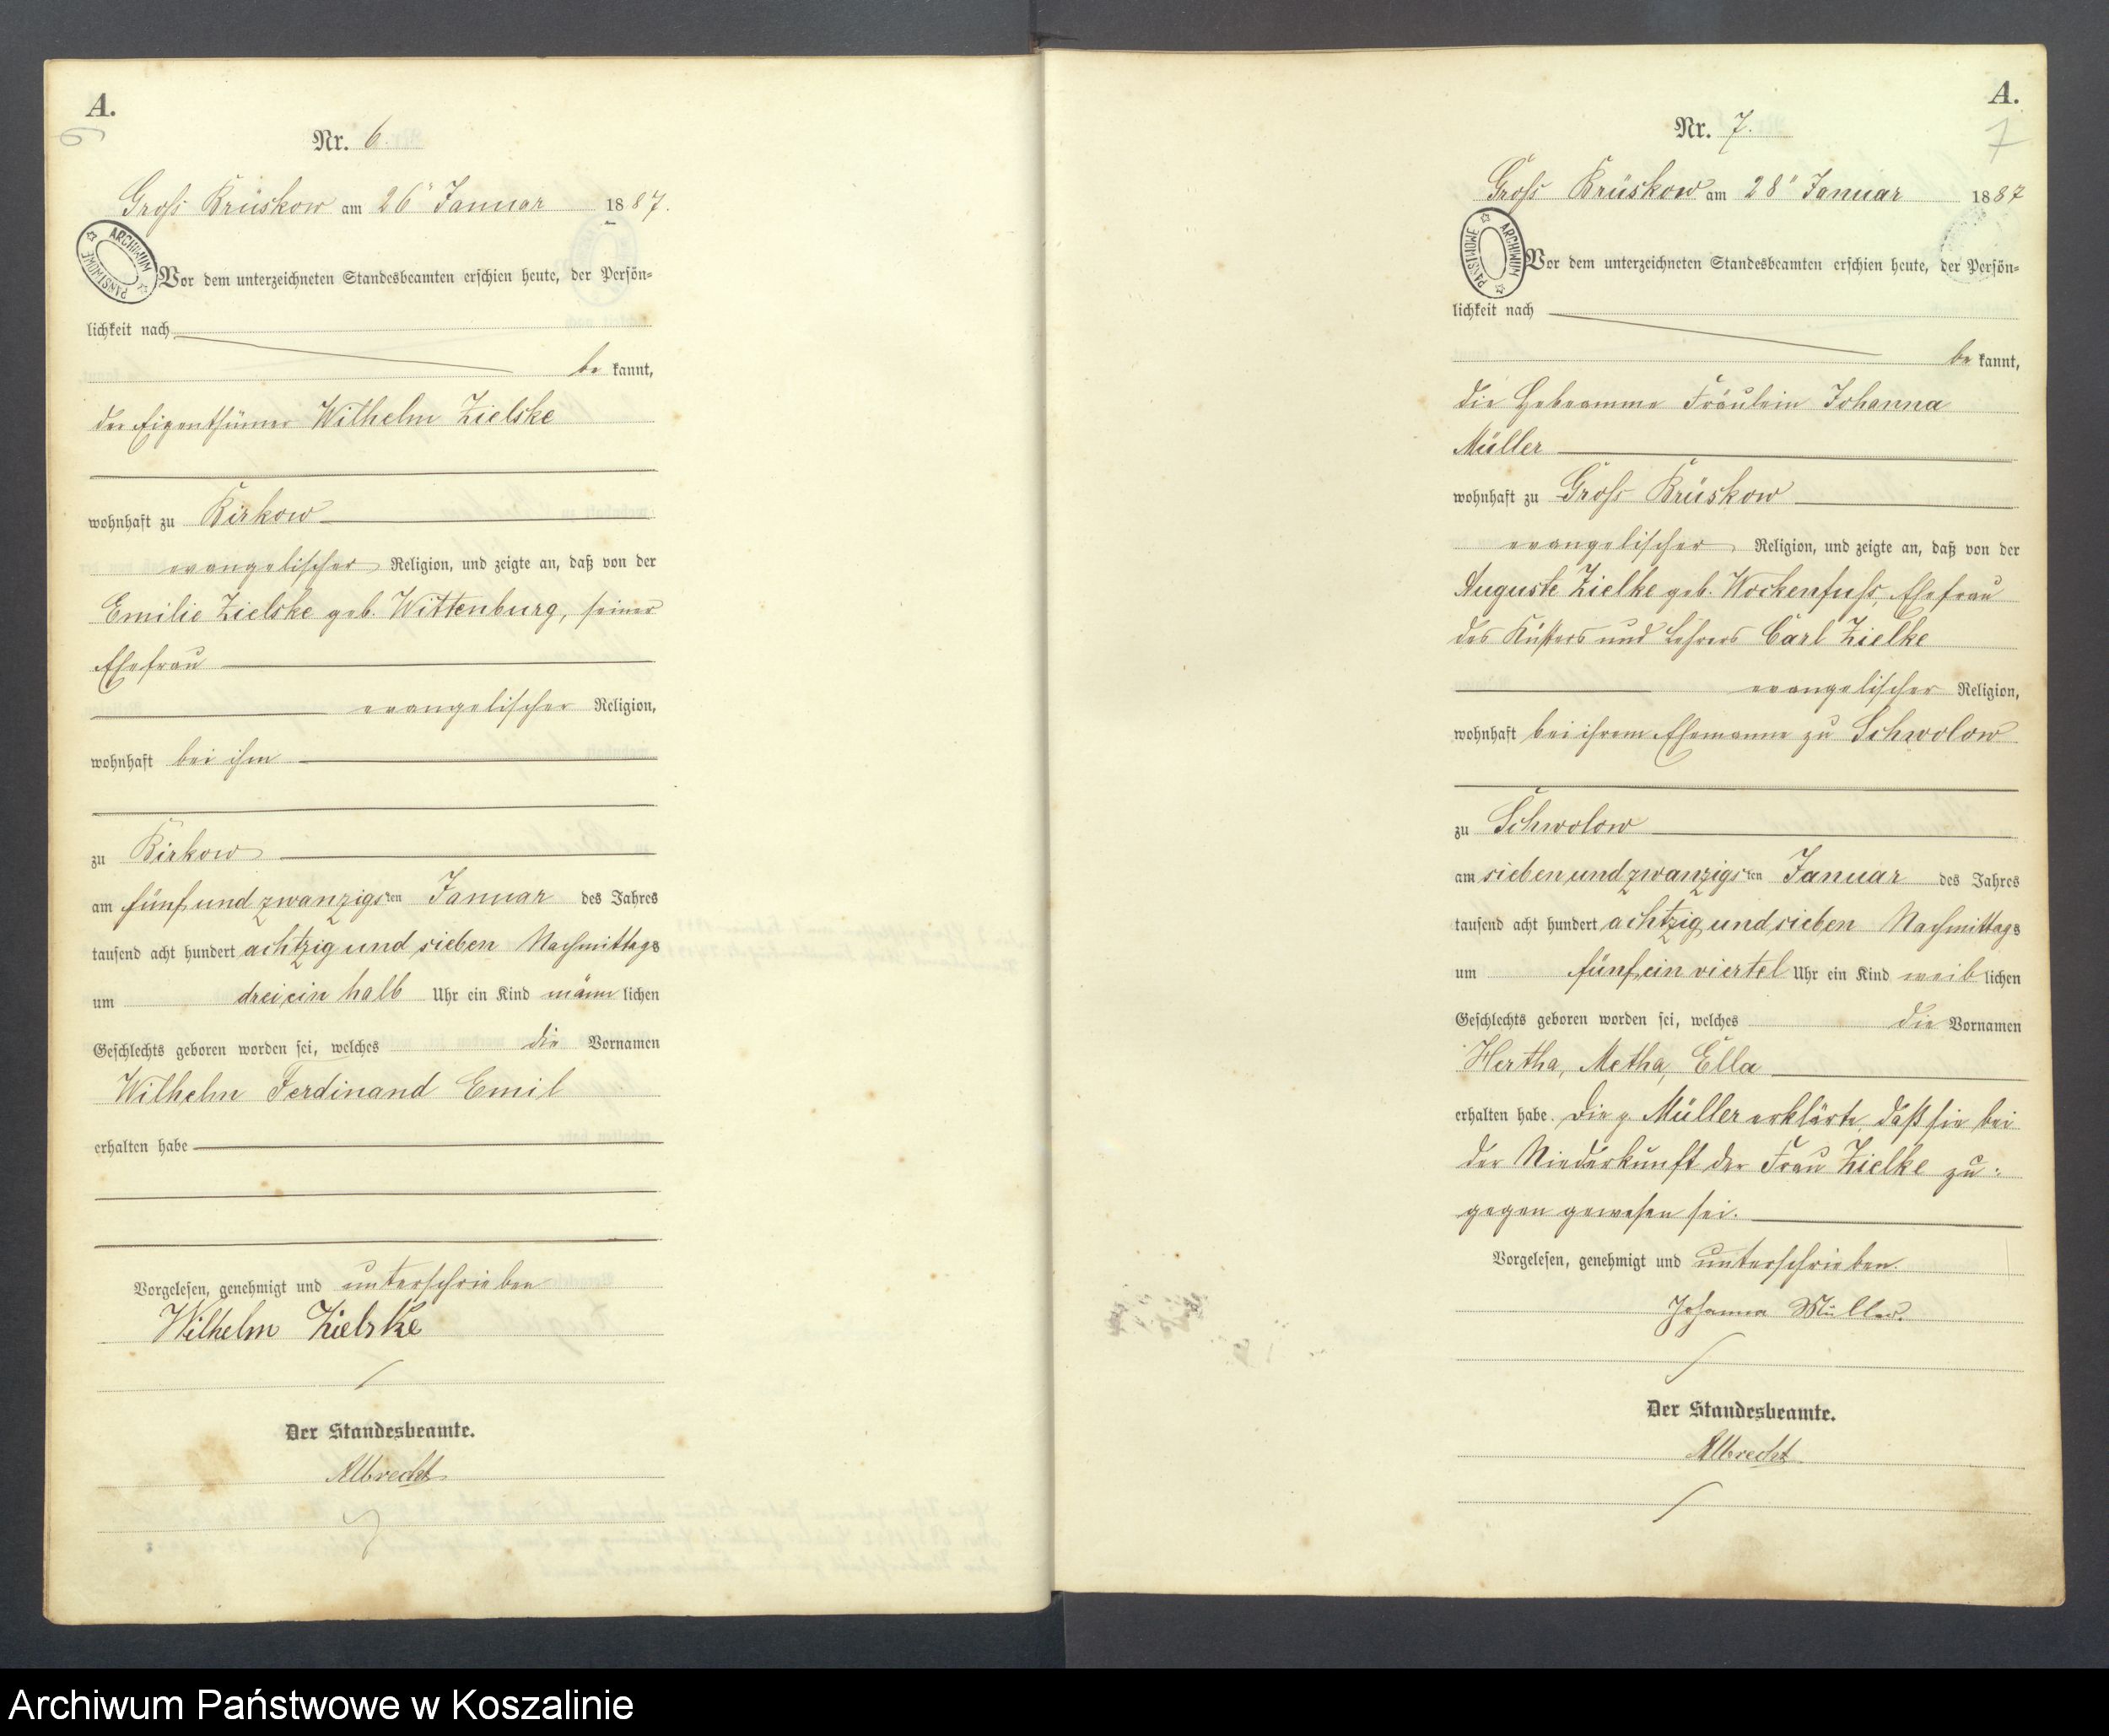 A.
6
Nr. 6.
Gross Brüskow am 26" Januar 1887.
ARCHIWUM PAŃSTWOWE
Vor dem unterzeichneten Standesbeamten erschien heute, der Persön=
lichkeit nach
be kannt,
der Eigenthümer Wilhelm Zielske
wohnhaft zu Birkow
evangelischer Religion, und zeigte an, daß von der
Emilie Zielske geb. Wittenburg, seiner
Ehefrau
evangelischer Religion,
wohnhaft bei ihm
zu Birkow
am fünf und zwanzigsten Januar des Jahres
tausend acht hundert achtzig und sieben Nachmittags
um drei ein halb Uhr ein Kind männ lichen
Geschlechts geboren worden sei, welches die Vornamen
Wilhelm Ferdinand Emil
erhalten habe
Vorgelesen, genehmigt und unterschrieben
Wilhelm Zielske
Der Standesbeamte.
Albrecht
A.
7
Nr. 7.
Gross Brüskow am 28" Januar 1887
ARCHIWUM PAŃSTWOWE
Vor dem unterzeichneten Standesbeamten erschien heute, der Persön=
lichkeit nach
be kannt,
die Hebeamme Fräulein Johanna
Müller
wohnhaft zu Gross Brüskow
evangelischer Religion, und zeigte an, daß von der
Auguste Zielke geb. Wockenfuss, Ehefrau
des Küsters und Lehrers Carl Zielke
evangelischer Religion,
wohnhaft bei ihrem Ehemanne zu Schwolow
zu Schwolow
am sieben und zwanzigsten Januar des Jahres
tausend acht hundert achtzig und sieben Nachmittags
um fünf ein viertel Uhr ein Kind weib lichen
Geschlechts geboren worden sei, welches die Vornamen
Hertha, Metha, Ella
erhalten habe. Die p. Müller erklärte, daß sie bei
der Niederkunft der Frau Zielke zu=
gegen gewesen sei.
Vorgelesen, genehmigt und unterschrieben.
Johanna Müller.
Der Standesbeamte.
Albrecht
Archiwum Państwowe w Koszalinie